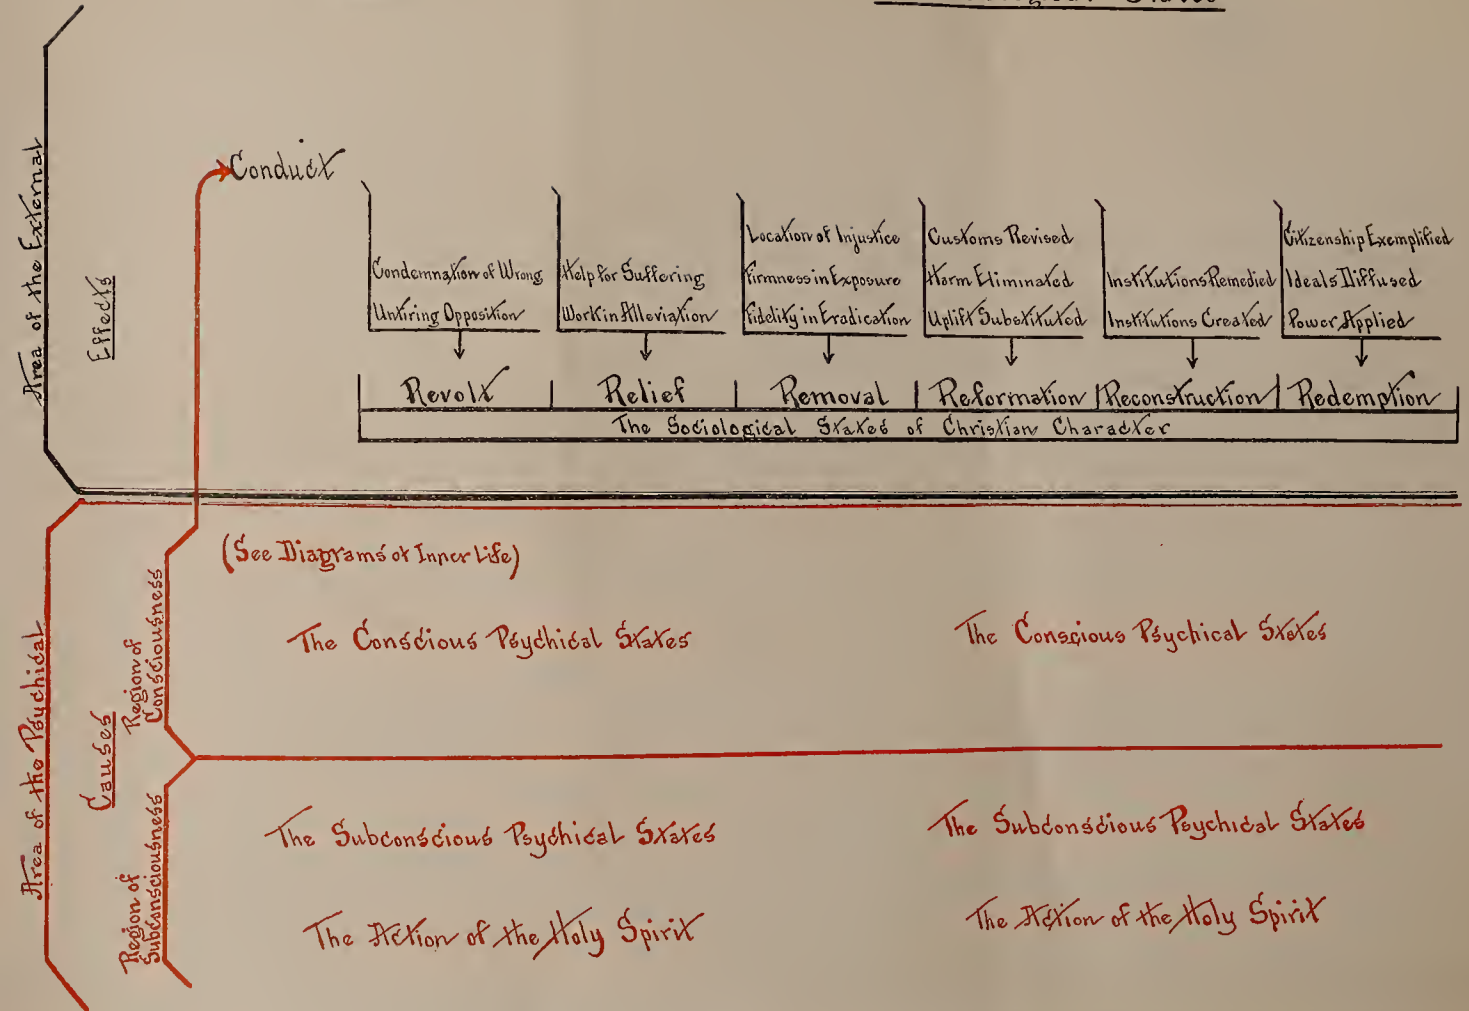 States
Area of the External
Effects
Conduct
Condemnation of Wrong
Untiring Opposition
Help for Suffering
Work in Alleviation
Location of Injustice
Firmness in Exposure
Fidelity in Eradication
Customs Revised
Harm Eliminated
Uplift Substituted
Institutions Remedied
Institutions Created
Citizenship Exemplified
Ideals Diffused
Power Applied
Revolt
Relief
Removal
Reformation
Reconstruction
Redemption
The Sociological States of Christian Character
Area of the Psychical
Causes
Region of
Consciousness
(See Diagrams of Inner Life)
The Conscious Psychical States
The Conscious Psychical States
Region of
Subconsciousness
The Subconscious Psychical States
The Subconscious Psychical States
The Action of the Holy Spirit
The Action of the Holy Spirit